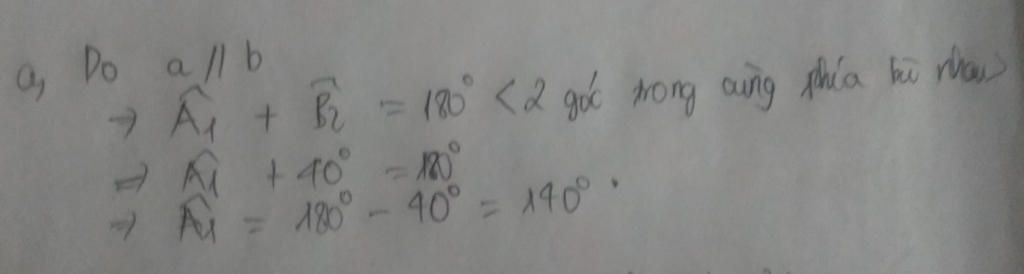 a, Do a // b
→ Â₁ + B̂₂ = 180° < 2 góc trong cùng phía bù nhau>
⇒ Â₁ + 40° = 180°
→ Â₁ = 180° - 40° = 140°.